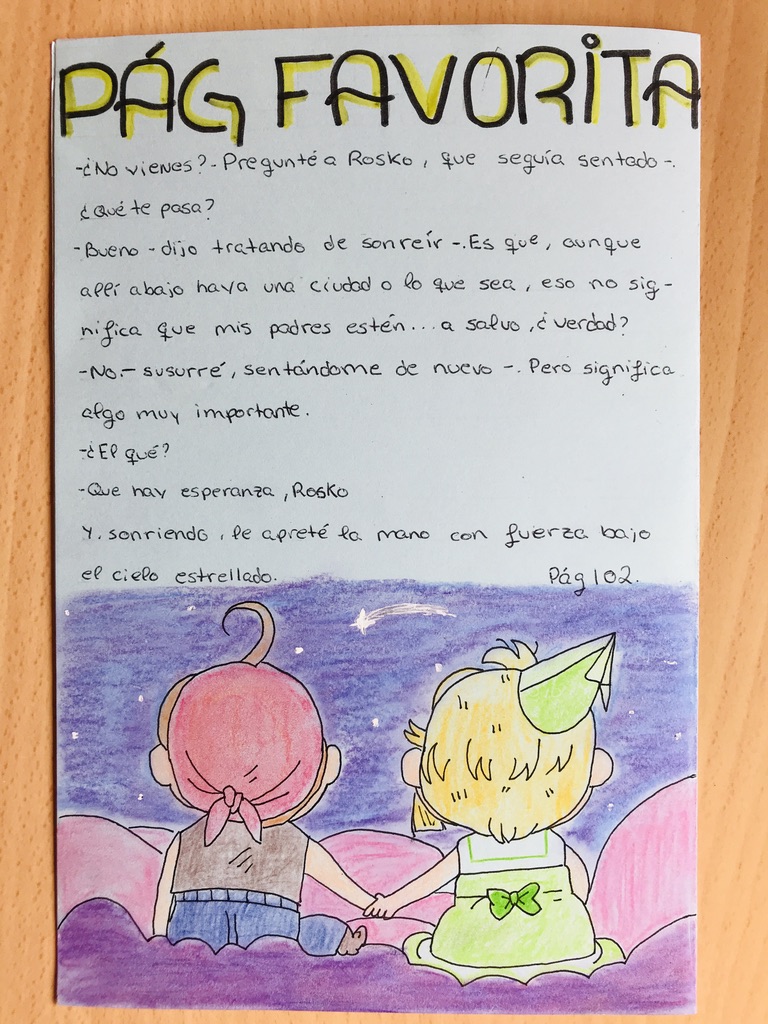 PÁG FAVORITA
-¿No vienes?- Pregunté a Rosko, que seguía sentado-.
¿Qué te pasa?
-Bueno - dijo tratando de sonreír -. Es que, aunque
allí abajo haya una ciudad o lo que sea, eso no sig-
nifica que mis padres estén... a salvo, ¿verdad?
-No.- susurré, sentándome de nuevo -. Pero significa
algo muy importante.
-¿El qué?
-Que hay esperanza, Rosko
Y. sonriendo, le apreté la mano con fuerza bajo
el cielo estrellado. Pág 102.